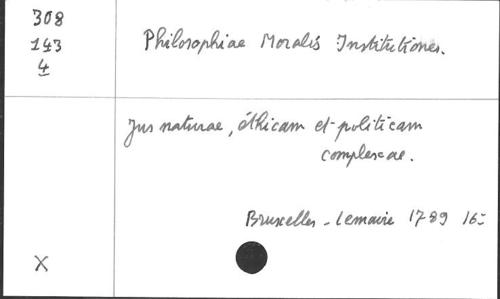 308
143
4
Philosophiae Moralis Institutiones.
Jus naturae, éthicam et politicam
complexae.
Bruxelles - Lemaire 1789 16º
X